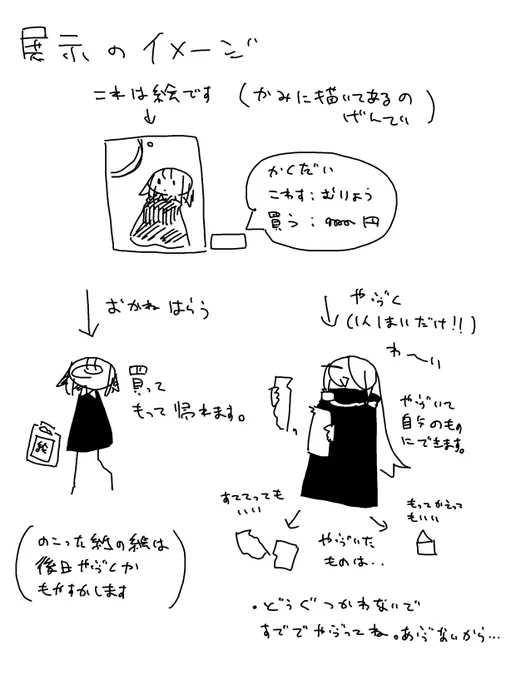 展示のイメージ
これは絵です (かみに描いてあるの
ぜんてい)
かくだい
こわす:むりょう
買う: 円
おかねはらう
やぶく
(1人1まいだけ!!)
わ〜い
買って
もって帰れます。
絵
やぶいて
自分のもの
にできます。
すててっても
いい
もってかえって
もいい
やぶいた
ものは..
(のこった紙の絵は
後日やぶくか
もやすかします)
・どうぐつかわないで
すででやぶってね。あぶないから…